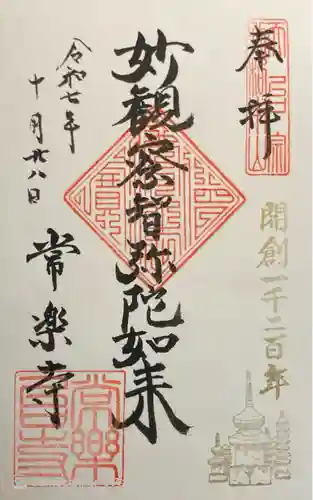 奉拝
開創一千二百年
妙觀察智弥陀如来
令和七年
十月廿八日
常楽寺